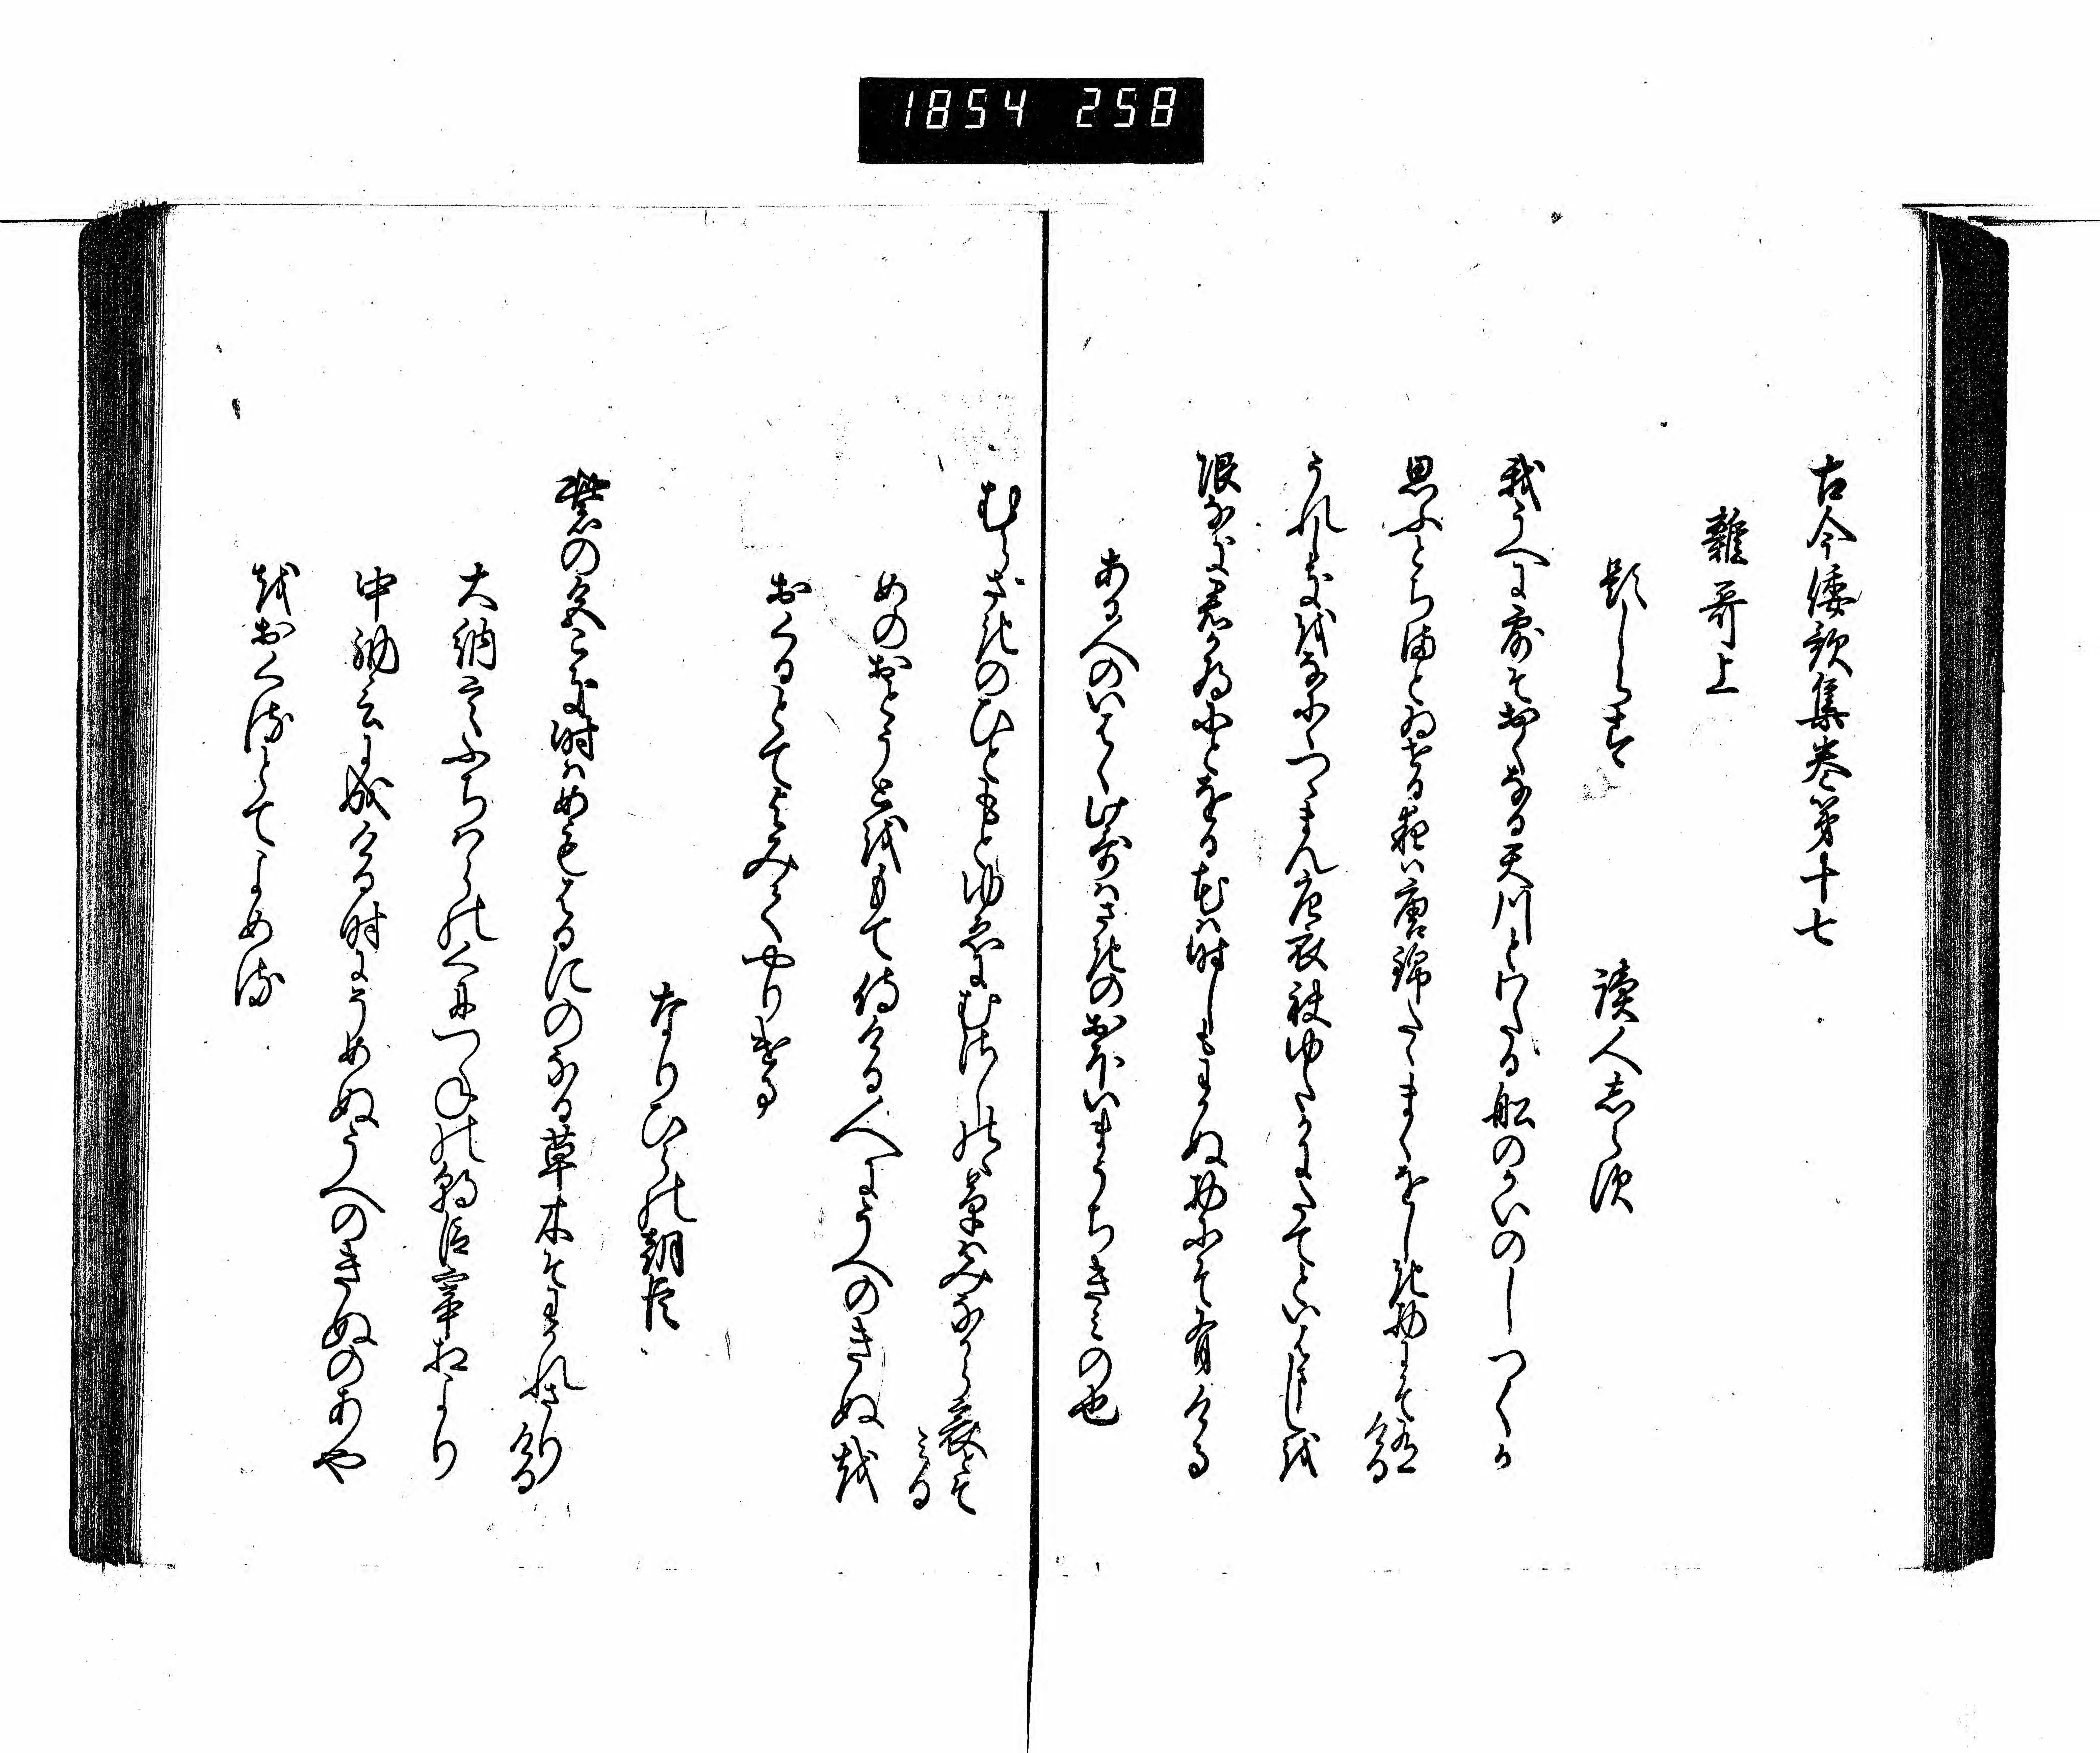 1854 258
古今倭歌集巻第十七
雑哥上
題しらす
読人志らす
我うへに露そおくなる天川とわたる舩のかいのしつくか
思ふとちまとゐせる夜は唐錦たゝまくをしき物にそ有ける
うれしきをなにゝつゝまん唐衣袂ゆたかにたてといはましを
限なき君か為にとをる花は時しもわかぬ物にそ有ける
ある人のいはく此哥はさきのおほいまうちきみの也
むらさきのひともとゆゑにむさしのゝ草はみなからあはれとそみる
めのおとうとをもて侍ける人にうへのきぬを
おくるとてよみてやりける
なりひらの朝臣
紫の色こき時はめもはるにのなる草木そわかれさりける
大納言ふちはらのくにつねの朝臣宰相より
中納言に成ける時にうめぬうへのきぬのあや
をおくるとてよめる